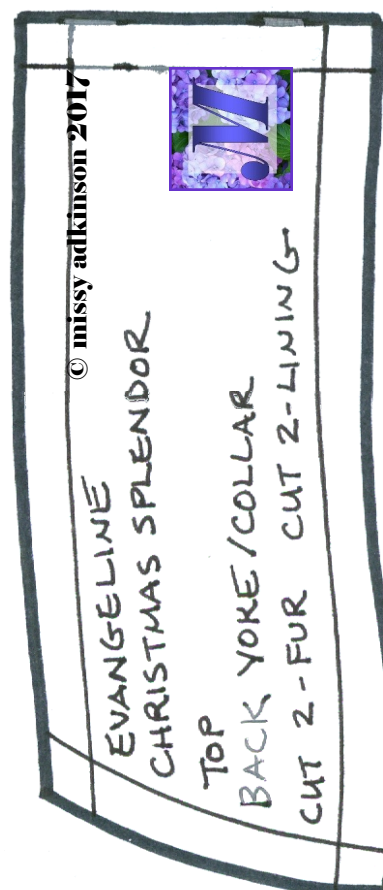 © missy adkinson 2017
M
EVANGELINE
CHRISTMAS SPLENDOR
TOP
BACK YOKE/COLLAR
CUT 2-FUR CUT 2-LINING